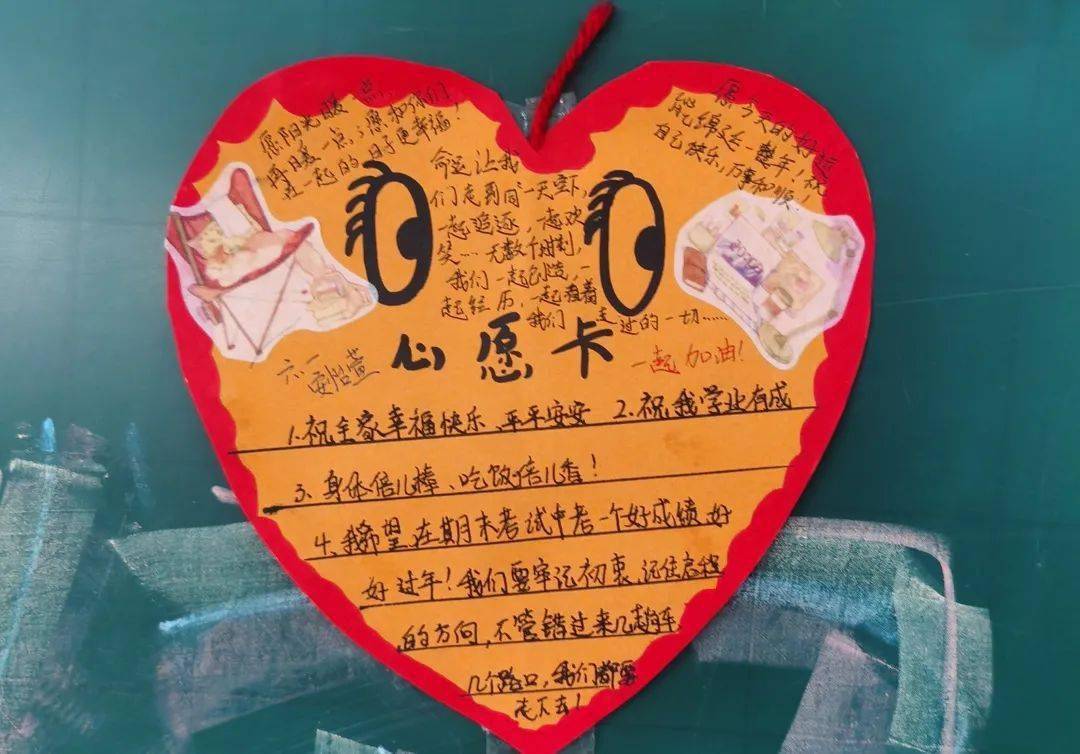 愿阳光暖一点,
再日暖一点,愿和你们
在一起的日子更幸福!
命运让我
们走到同一天空下,
一起追逐,一起欢
笑…无数个时刻,
我们一起创造,一
起经历,一起看着
我们一走过的一切……
愿今天的好运
能绵延一整年,祝
自己快乐,万事和顺!
心愿卡
六一
一起加油!
1.祝全家幸福快乐、平平安安 2.祝我学业有成
3、身体倍儿棒、吃饭倍儿香!
4、我希望在期末考试中考一个好成绩,好
好过年!我们要牢记初衷,记住启程
的方向,不管错过来几趟车
几个路口,我们都要
走下去!